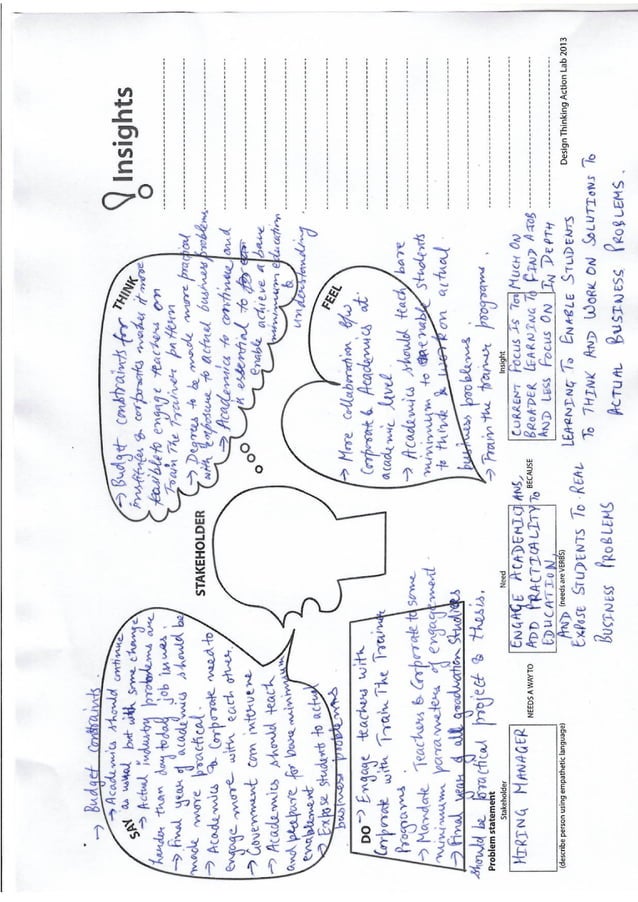 → Budget constraints.
SAY
→ Academics should continue
as usual but with some change
→ Actual industry problems are
harder than day today job issues.
→ Final year of academics should be
made more practical.
→ Academics & Corporate need to
engage more with each other.
→ Government can intervene
→ Academics should teach
and prepare for bare minimum
enablement
→ Expose students to actual
business problems
STAKEHOLDER
THINK
→ Budget constraints for
institutes & corporates makes it more
feasible to engage teachers on
Train The Trainer pattern
→ Degrees to be made more practical
with exposure to actual business problems
→ Academics to continue and
is essential to
enable achieve a bare
minimum education
&
understanding.
Insights
DO → Engage teachers with
Corporate with Train The Trainer
Programs.
→ Mandate Teachers & Corporate to some
minimum parameters of engagement.
→ Final year of all graduation studies
should be practical project & thesis.
FEEL
→ More collaboration b/w
Corporate & Academics at
academic level
→ Academics should teach bare
minimum to enable students
to think & work on actual
business problems
→ Train the trainer programs.
Problem statement
Stakeholder
HIRING MANAGER
(describe person using empathetic language)
NEEDS A WAY TO
Need
ENGAGE ACADEMICIANS,
ADD PRACTICALITY TO
EDUCATION,
AND (needs are VERBS)
EXPOSE STUDENTS TO REAL
BUSINESS PROBLEMS
BECAUSE
Insight
CURRENT FOCUS IS TOO MUCH ON
BROADER LEARNING TO FIND A JOB
AND LESS FOCUS ON IN DEPTH
LEARNING TO ENABLE STUDENTS
TO THINK AND WORK ON SOLUTIONS TO
ACTUAL BUSINESS PROBLEMS.
Design Thinking Action Lab 2013